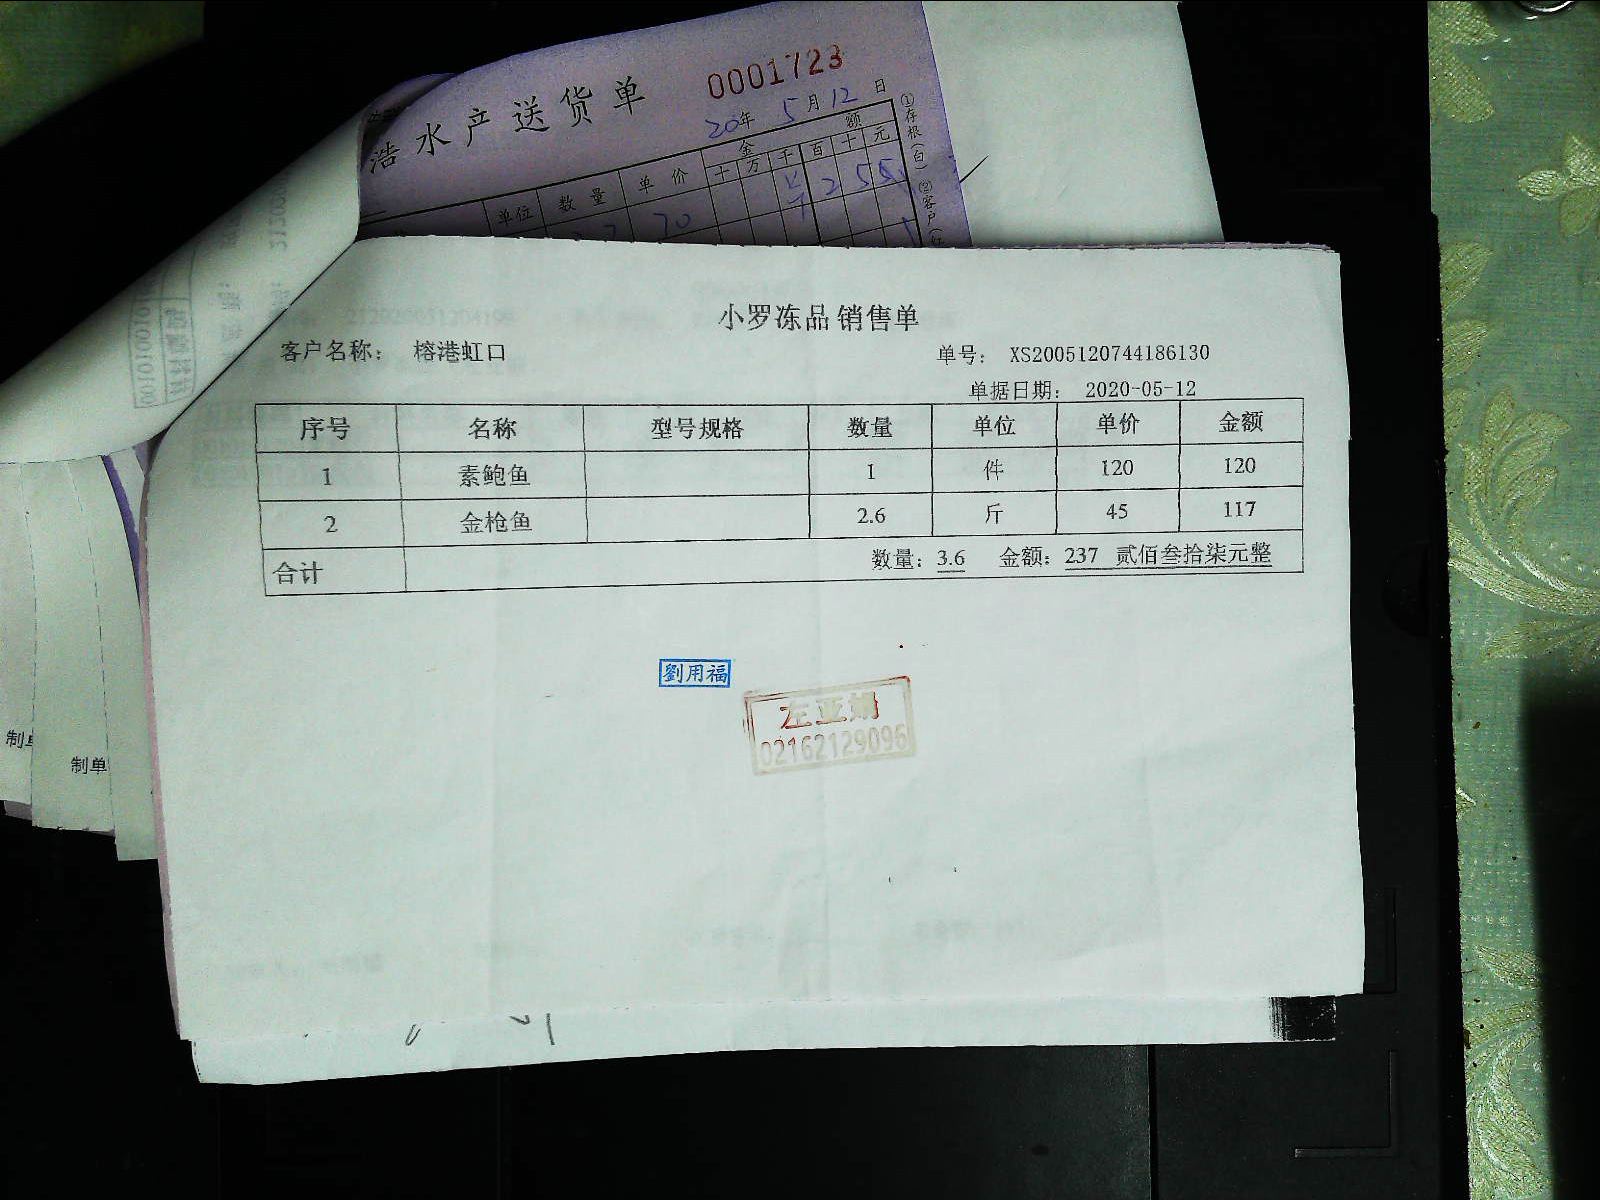 0001723
浩水产送货单
20年 5月12日
①存根(白) ②客户
金 额
单位 数量 单价 十 万 千 百 十 元
70 2 5 5
小罗冻品 销售单
客户名称： 榕港虹口 单号： XS2005120744186130
单据日期： 2020-05-12
序号 名称 型号规格 数量 单位 单价 金额
1 素鲍鱼 1 件 120 120
2 金枪鱼 2.6 斤 45 117
合计 数量：3.6 金额：237 贰佰叁拾柒元整
劉用福
左亚娟
02162129096
制单
制单